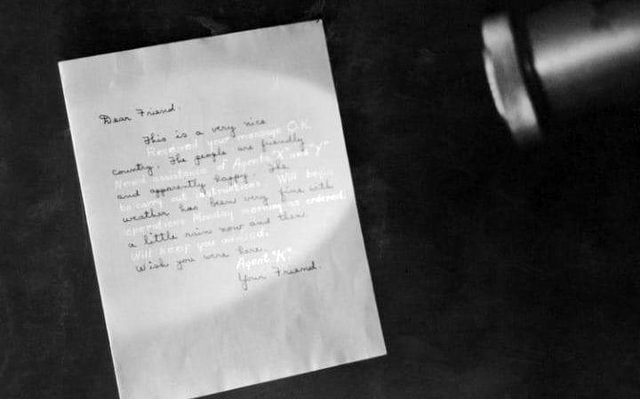 Dear Friend,
This is a very nice
Received your message O.K.
country. The people are friendly
Need assistance of Agents "X" and "Y"
and apparently happy. The
to carry out instructions. Will begin
weather has been very fine with
operations Monday morning as ordered.
a little rain now and then.
Will keep you advised.
Wish you were here.
Agent "K"
Your Friend.